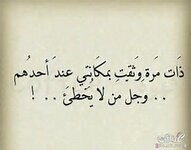 ذَات مَرة وَثقتِ بمكَانتِي عندَ أحدُهم
.. وجل من لا يُخطئ .. !